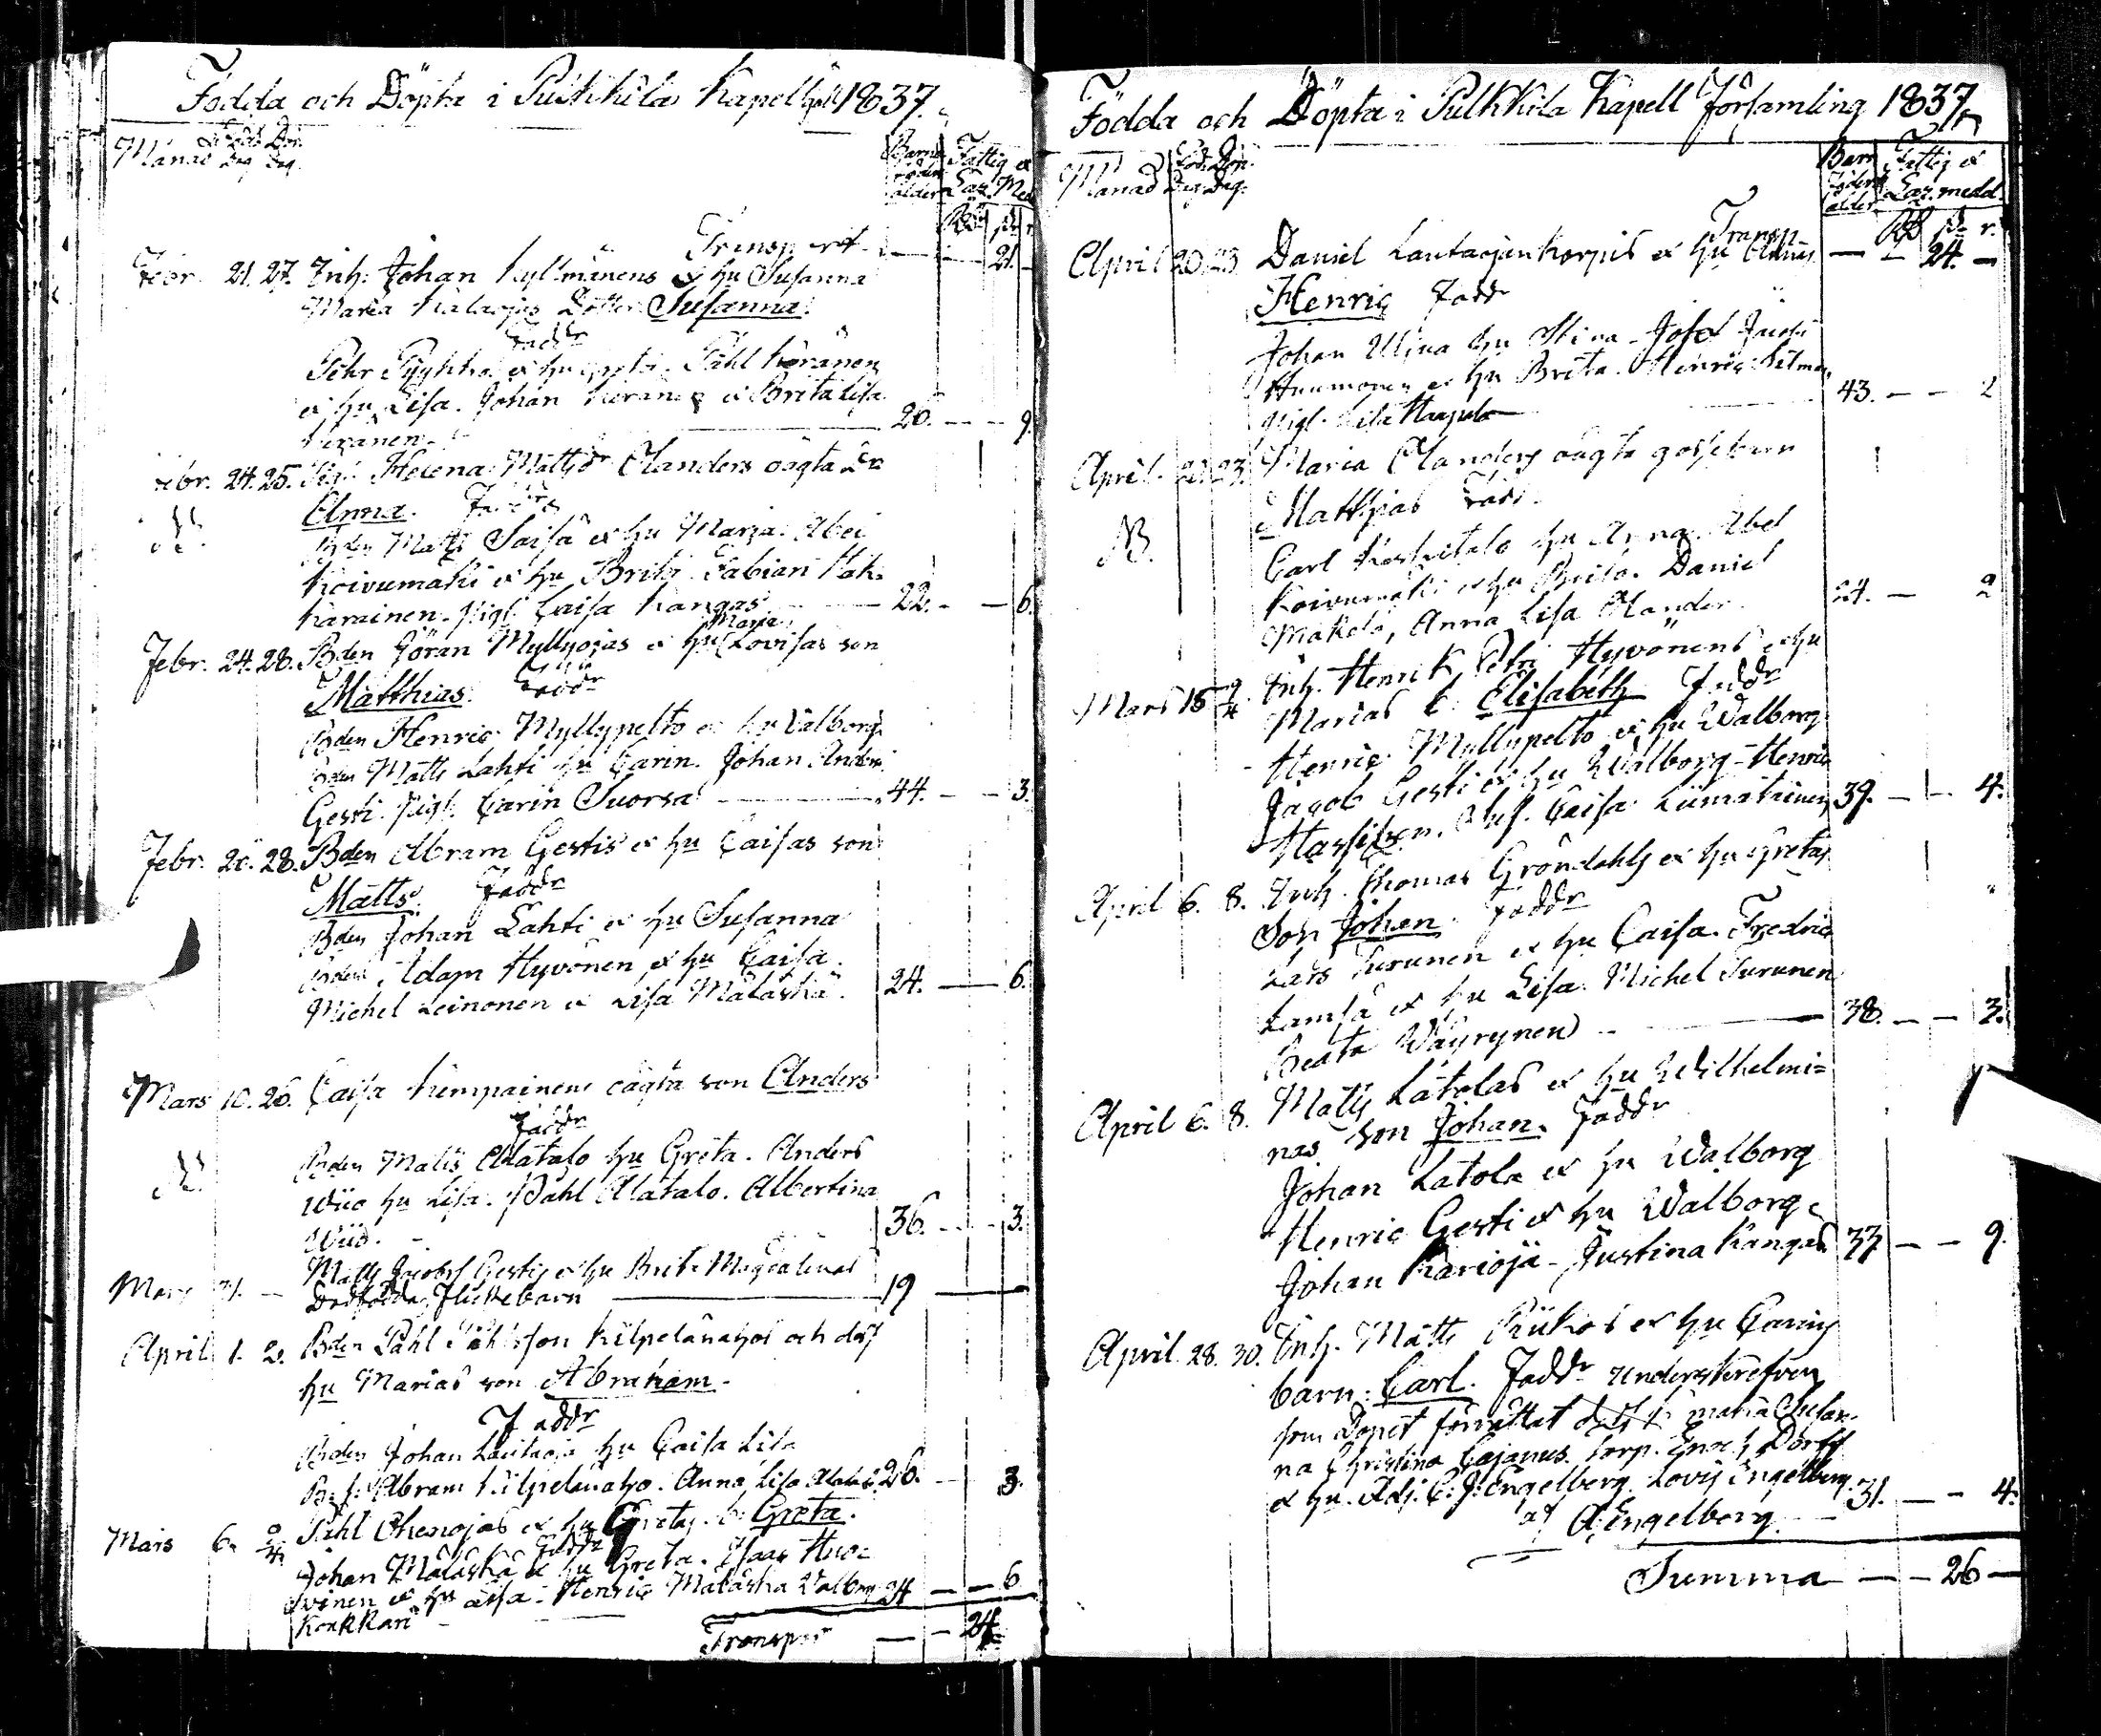 Födda och Döpta i Pulkkila Kapell 1837.
Månad Föd. Dag Döp. Dag
Barna föders. ålder Fattig o Laz. Med
Transport — 21. —
Febr. 21. 27. Inh. Johan Kyllmänens o hu Susanna
Maria Dotter Susanna.
Faddr
Pehr o hu Greta. Påhl Keränen
o hu Lisa. Johan Keränen o Brita Lisa
Keränen. 20. — — 9.
Febr. 24. 25. Pig. Helena Mattsdr Olanders oägta Dr
Anna. Faddr
N.
Bden Matts Saisä o hu Maria. Abel
Koivumäki o hu Brita. Fabian Kak-
karainen. Pigl. Caisa Kangas — 22. — — 6.
Febr. 24. 28. Bden Göran Myllyojas o hu Maria Lovisas son
Matthias. Faddr
Bden Henric Myllypelto o hu Valborg.
Bden Matts Lahti hu Carin. Johan Anders
Gesti. Pigl. Carin Suorsa — 44. — — 3.
Febr. 26. 28. Bden Abram Gestis o hu Caisas son
Matts. Faddr
Bden Johan Lahti o hu Susanna
Bden Adam Hyvönen o hu Caisa.
Michel Leinonen o Lisa Mälaskä. 24. — 6.
Mars 10. 26. Caisa Kempainens oägta son Anders
Faddr
N.
Bden Matts Alatalo hu Greta. Anders
Wiio hu Lisa. Påhl Alatalo. Albertina
Wiio. — 36. — — 3.
Mars 31. — Matts Jacobs. Gestis o hu Brita Magdalenas
Dödfödda Flickebarn — 19 —
April 1. 2. Bden Påhl Påhlsson Kilpelänahos och dess
hu Marias son Abraham.
Faddr
Bden Johan Lautaoja hu Caisa Lisa
Abram Kilpelänaho. Anna Lisa 26. — 3.
Mars 6. 2/4 Påhl Ohenojas o hu Gretas b. Greta.
Faddr
Johan Mälaskä o hu Greta. Isaac Huo-
vinen o hu Caisa. Henric Mälaskä Valborg 24 — — 6
Korkkari —
Transport — — 24

Födda och Döpta i Pulkkila Kapell Församling 1837,
Månad Föd. Dag Döp. Dag.
Barn föders. ålder Fattig o Laz. medd.
Transp.
April 20. 23. Daniel Lautaojankorpis o hu Annas — — 24. —
Henric Faddr
Johan Uljua hu Stina. Josef
Huumonen o hu Brita. Henric
Pigl. Lisa Haapala — 43. — — 2
April 21. 23. Maria Olanders oägta gossebarn
Matthias Faddr.
NB.
Carl Koskitalo hu Anna. Abel
Koivumäki o hu Brita. Daniel
Mäkelä, Anna Lisa Olander. 24. — 2
Mars 15 9/4 Inh. Henrik Petri Hyvönens o hu
Marias b. Elisabeth Faddr
Henric Myllypelto o hu Walborg
Jacob Gesti o hu Walborg. Henric
Caisa Liimatainen 39. — — 4.
April 6. 8. Inh. Thomas Gröndahls o hu Gretas
Son Johan. Faddr
Lars Turunen o hu Caisa. Fredric
Lamsa o hu Lisa. Michel Turunen
Beata Wäyrynen — 38. — — 3.
April 6. 8. Matts Latolas o hu Wilhelmi=
nas Son Johan. Faddr
Johan Latola o hu Walborg
Henric Gesti o hu Walborg.
Johan Karioja. Justina Kangas 33 — — 9
April 28. 30. Inh. Matts Riikos o hu Carins
barn: Carl. Faddr Underskrefven
som Dopet förrättat Maria Susan-
na Christina Cajanus. Corp. Enoch Dorff
o hu. Adj. C. J. Engelberg. Lovis Engelberg. 31. — — 4.
af A Engelberg
Summa — — 26 —